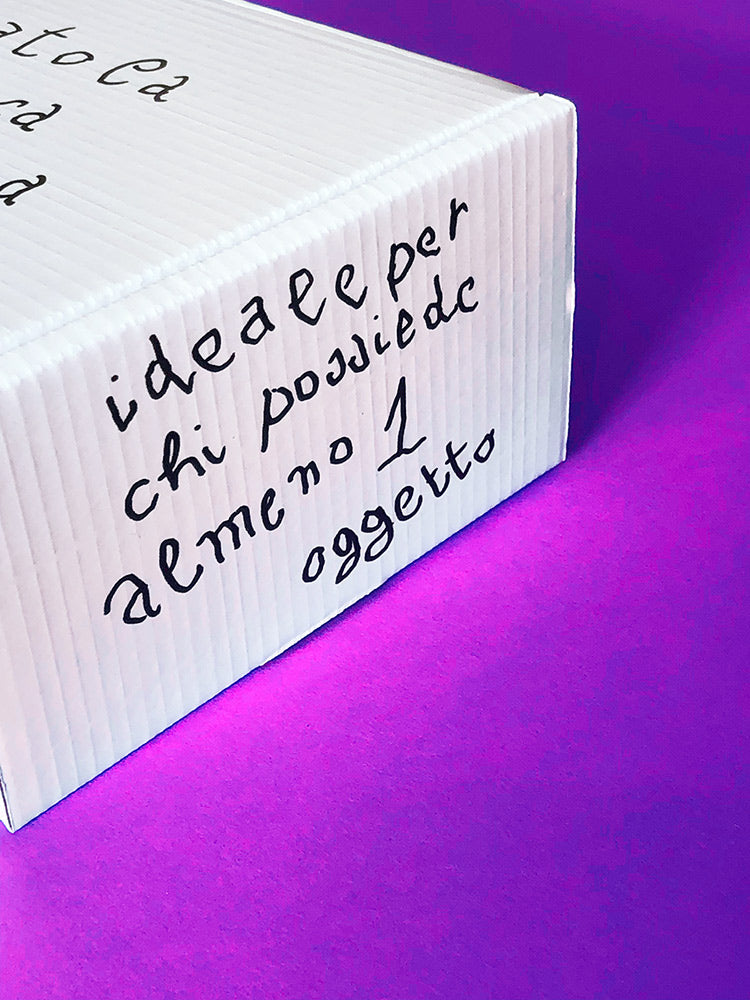 atola
ca
a
ideale per
chi possiede
almeno 1
oggetto